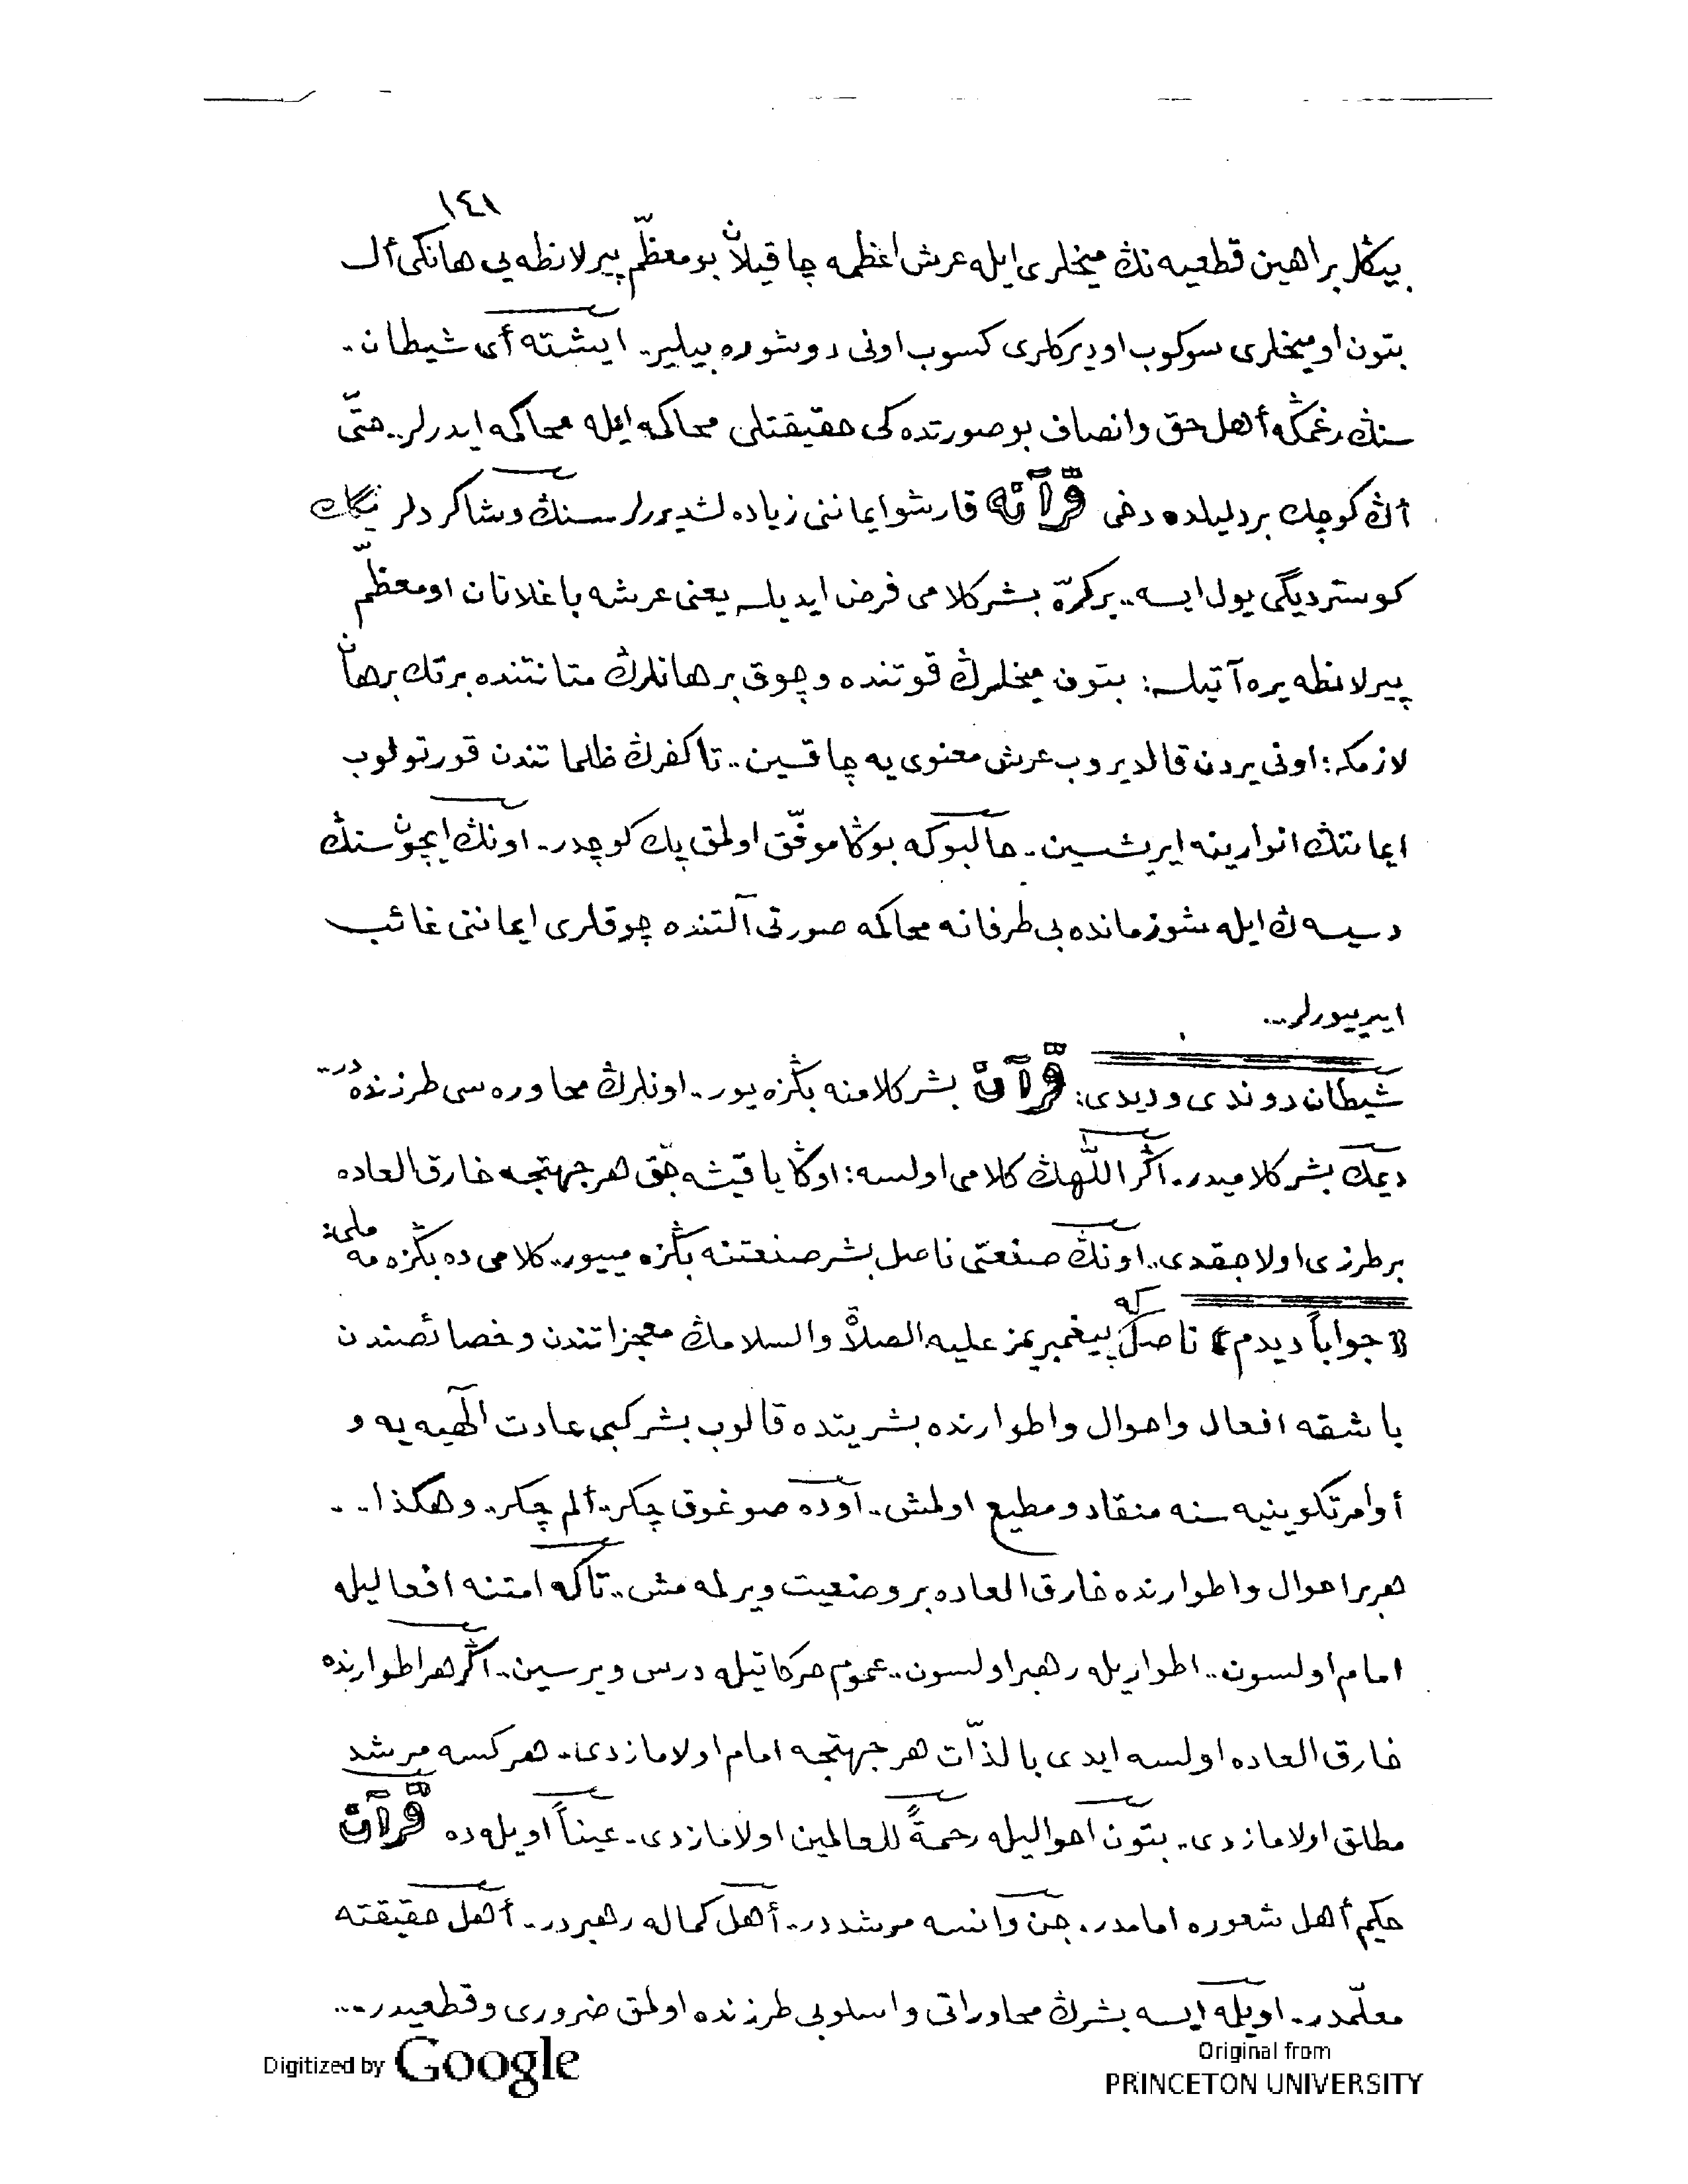 ١٤١
بيڭلر براهين قطعيه نڭ ميخلرى ايله عرش اعظمه چاقيلان بو معظّم پيرلانطه يى هانكى أل
بتون او ميخلرى سوكوب او ديركلرى كسوب اونى دوشوره بيلير.. ايشته أى شيطان..
سنڭ رغمڭه أهل حق وانصاف بو صورتده كى حقيقتلى محاكمه ايله محاكمه ايدرلر.. حتّى
أڭ كوچك بر دليلده دخى قرآنه قارشو ايماننى زياده لشديررلر سنڭ وشاكردلرينڭ
كوسترديگى يول ايسه.. بر كرّه بشر كلامى فرض ايديلسه يعنى عرشه باغلانان او معظّم
پيرلانطه يره آتيلسه: بتون ميخلرڭ قوتنده وچوق برهانلرڭ متانتنده برتك برهان
لازمكه: اونى يردن قالديروب عرش معنوى يه چاقسين.. تا كفرڭ ظلماتندن قورتولوب
ايمانڭ انوارينه ايرشسين.. حالبوكه بوڭا موفّق اولمق پك كوچدر.. اونڭ ايچون سنڭ
دسيسه ڭ ايله شو زمانده بى طرفانه محاكمه صورتى آلتنده چوقلرى ايماننى غائب
ايدييورلر...
شيطان دوندى وديدى: قرآن بشر كلامنه بڭزه يور.. اونلرڭ محاوره سى طرزنده در..
ديمك بشر كلاميدر.. اگر اللّهڭ كلامى اولسه: اوڭا ياقيشه جق هر جهتجه خارق العاده
بر طرزى اولاجقدى.. اونڭ صنعتى ناصل بشر صنعتنه بڭزه مييور.. كلامى ده بڭزه مه ملى:
«جواباً ديدم» ناصلكه پيغمبريمز عليه الصلاة والسلامڭ معجزاتندن وخصائصندن
باشقه افعال واحوال واطوارنده بشريتده قالوب بشر كبى عادت الٓهيه يه و
أوامر تكوينيه سنه منقاد ومطيع اولمش.. اوده صوغوق چكر.. ألم چكر.. وهكذا...
هر بر احوال واطوارنده خارق العاده بر وضعيت ويرلمه مش.. تاكه امتنه افعاليله
امام اولسون.. اطواريله رهبر اولسون.. عموم حركاتيله درس ويرسين.. اگر هر اطوارنده
خارق العاده اولسه ايدى بالذّات هر جهتجه امام اولامازدى.. هركسه مرشد
مطلق اولامازدى.. بتون احواليله رحمةً للعالمين اولامازدى.. عيناً اويله ده قرآن
حكيم أهل شعوره امامدر.. جن وانسه مرشددر.. أهل كماله رهبردر.. أهل حقيقته
معلّمدر.. اويله ايسه بشرڭ محاوراتى واسلوبى طرزنده اولمق ضرورى وقطعيدر...
Digitized by Google
Original from
PRINCETON UNIVERSITY